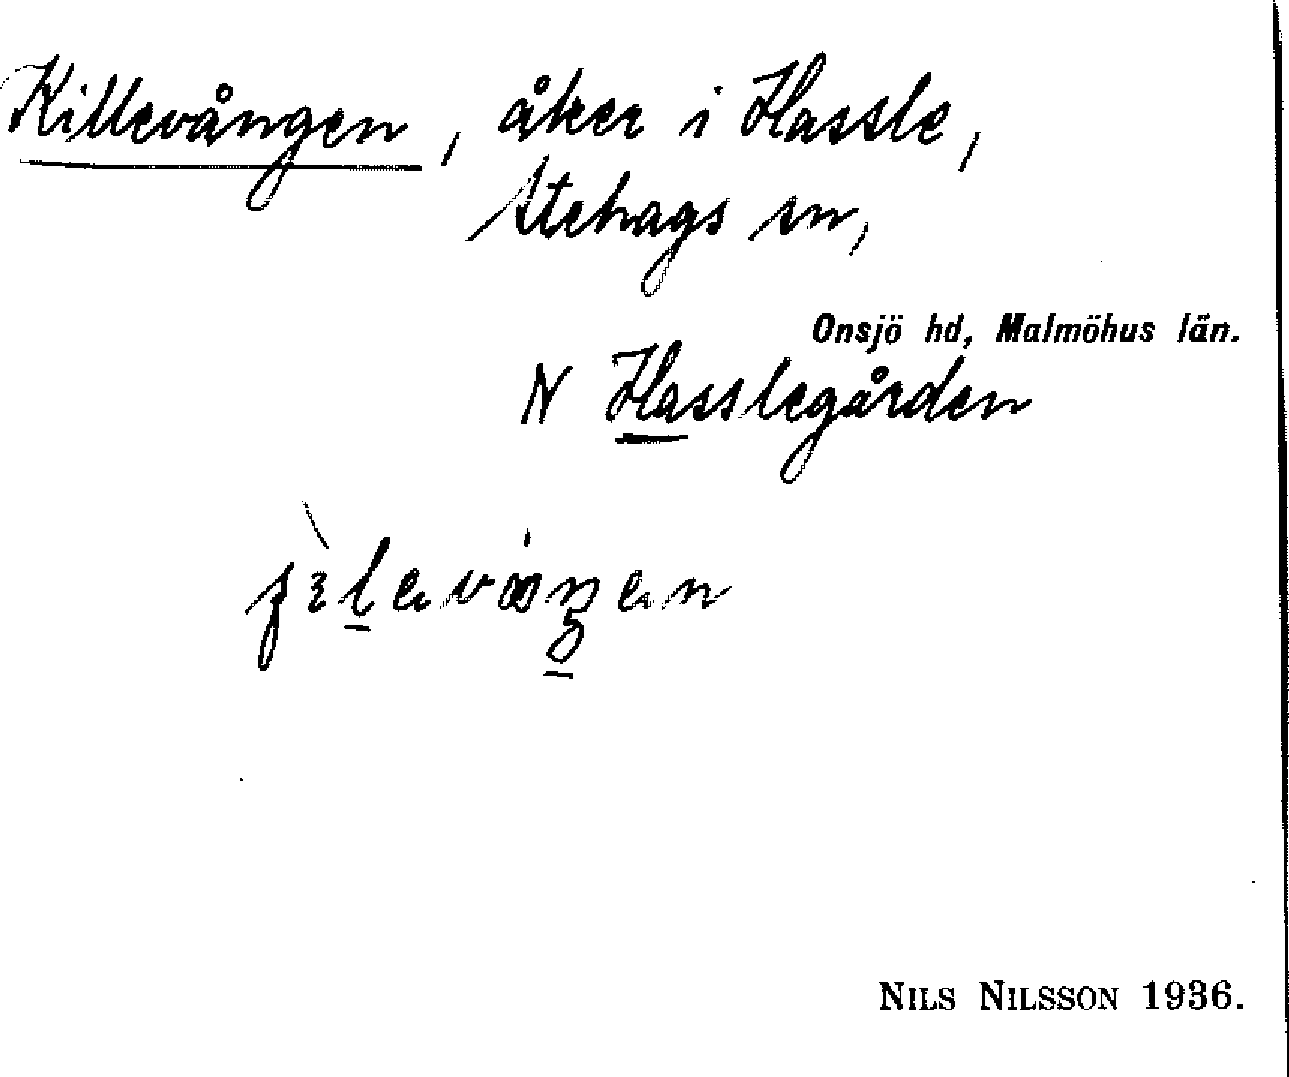 Killevången, åker i Hassle,
Stehags sn,
Onsjö hd, Malmöhus län.
N Hasslegården
NILS NILSSON 1936.